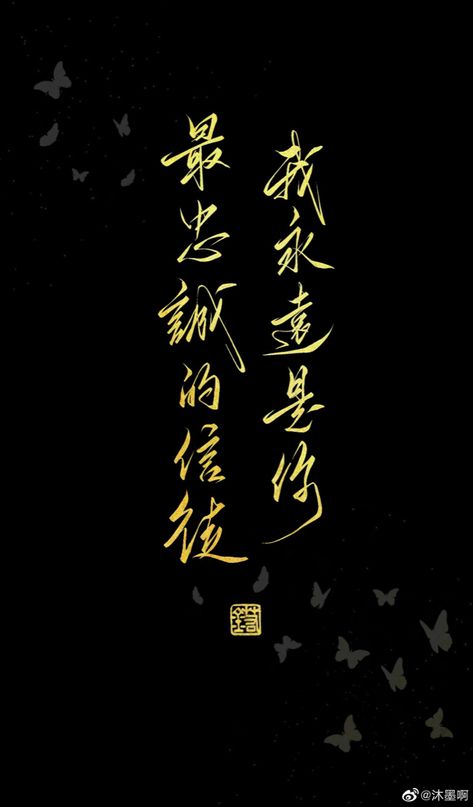 我永遠是你
最忠誠的信徒
@沐墨啊